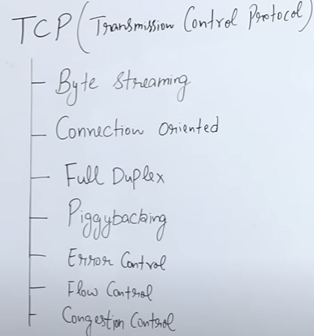 TCP (Transmission Control Protocol)
Byte Streaming
Connection Oriented
Full Duplex
Piggybacking
Error Control
Flow Control
Congestion Control